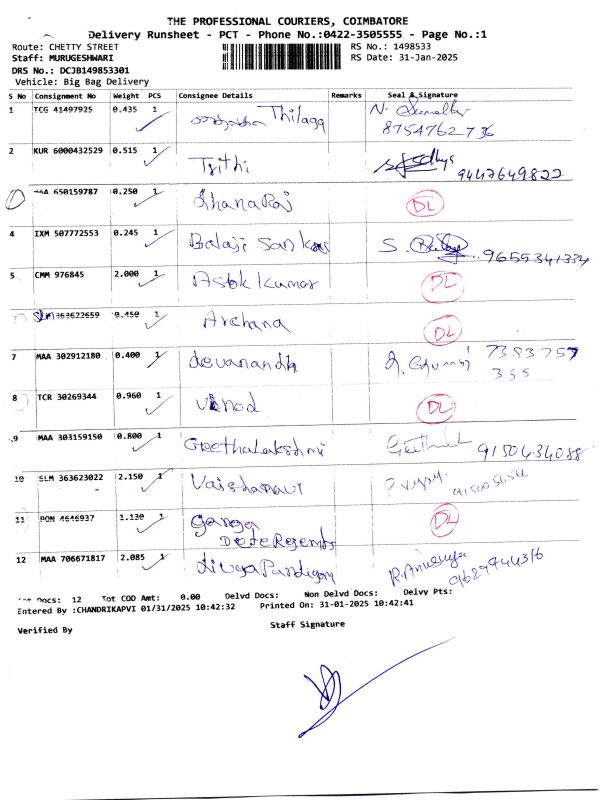 THE PROFESSIONAL COURIERS, COIMBATORE
Delivery Runsheet - PCT - Phone No.:0422-3505555 - Page No.:1
Route: CHETTY STREET RS No.: 1498533
Staff: MURUGESHWARI RS Date: 31-Jan-2025
DRS No.: DCJB149853301
Vehicle: Big Bag Delivery
S No Consignment No Weight PCS Consignee Details Remarks Seal & Signature
1 TCG 41497925 0.435 1 Thilaga N.
8754762736
2 KUR 6000432529 0.515 1 Trithi 9447649822
MAA 650159787 0.250 1 DhanaRaj DL
4 IXM 507772553 0.245 1 Balaji Sankar S. 9659341334
5 CMM 976845 2.000 1 Astok Kumar DL
SLM 363622659 0.450 1 Archana DL
7 MAA 302912180 0.400 1 devanandh 7383757
355
8 TCR 30269344 0.960 1 Vinod DL
9 MAA 303159150 0.800 1 Geethalakshmi 9150434088
10 SLM 363623022 2.150 1 Vaishanavi
11 PON 4646937 1.130 1 Ganga DL
12 MAA 706671817 2.085 1 R.Anusuya
9629744316
Tot Docs: 12 Tot COD Amt: 0.00 Delvd Docs: Non Delvd Docs: Delvy Pts:
Entered By :CHANDRIKAPVI 01/31/2025 10:42:32 Printed On: 31-01-2025 10:42:41
Verified By Staff Signature